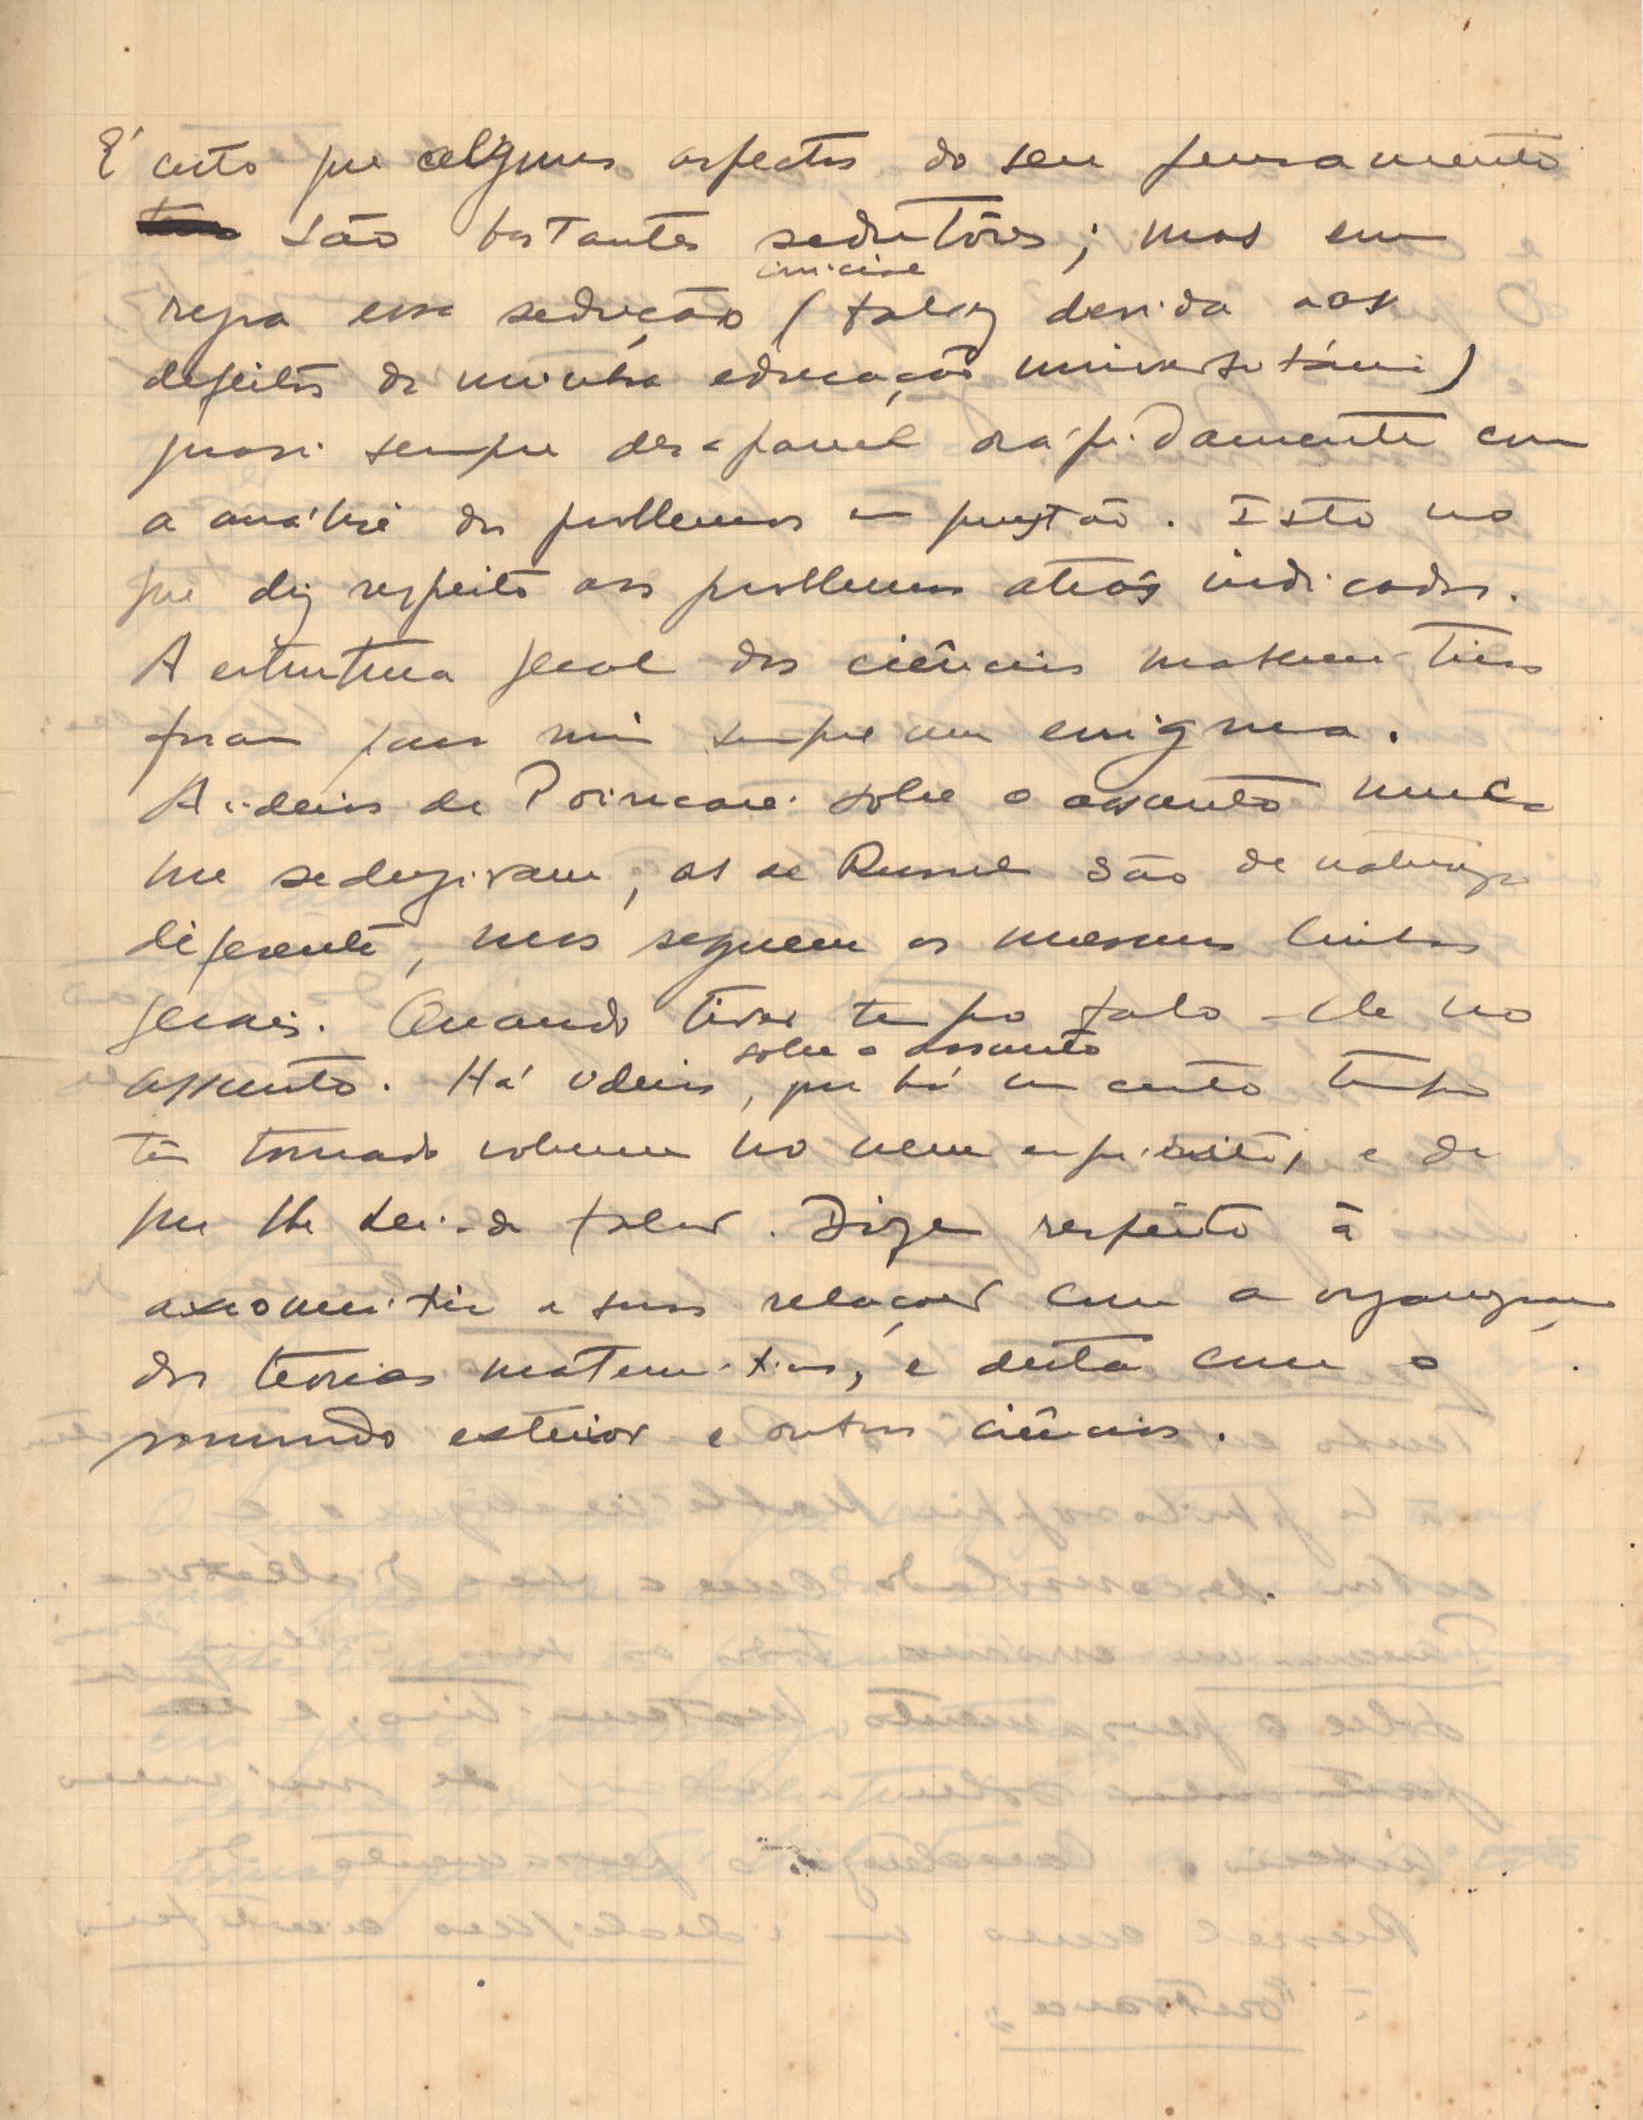 É certo que alguns aspectos do seu pensamento
são bastantes sedutôres; mas em
inicial
regra essa sedução (talvez devida aos
defeitos da minha educação universitária)
quasi sempre desaparece rápidamente com
a análise dos problemas em questão. Isto no
que diz respeito aos problemas atrás indicados.
A estrutura geral das ciências matemáticas
foram para mim sempre um enigma.
As ideias de Poincaré sobre o assunto nunca
me seduziram; as de Russel são de natureza
diferente, mas seguem as mesmas linhas
gerais. Quando tiver tempo falo-lhe no
sobre o assunto
assunto. Há ideias, que há um certo tempo
têm tomado volume no meu espírito, e de
que lhe hei-de falar. Dizem respeito à
axiomática e suas relações com a organização
das teorias matemáticas, e desta com o
mundo exterior e outras ciências.